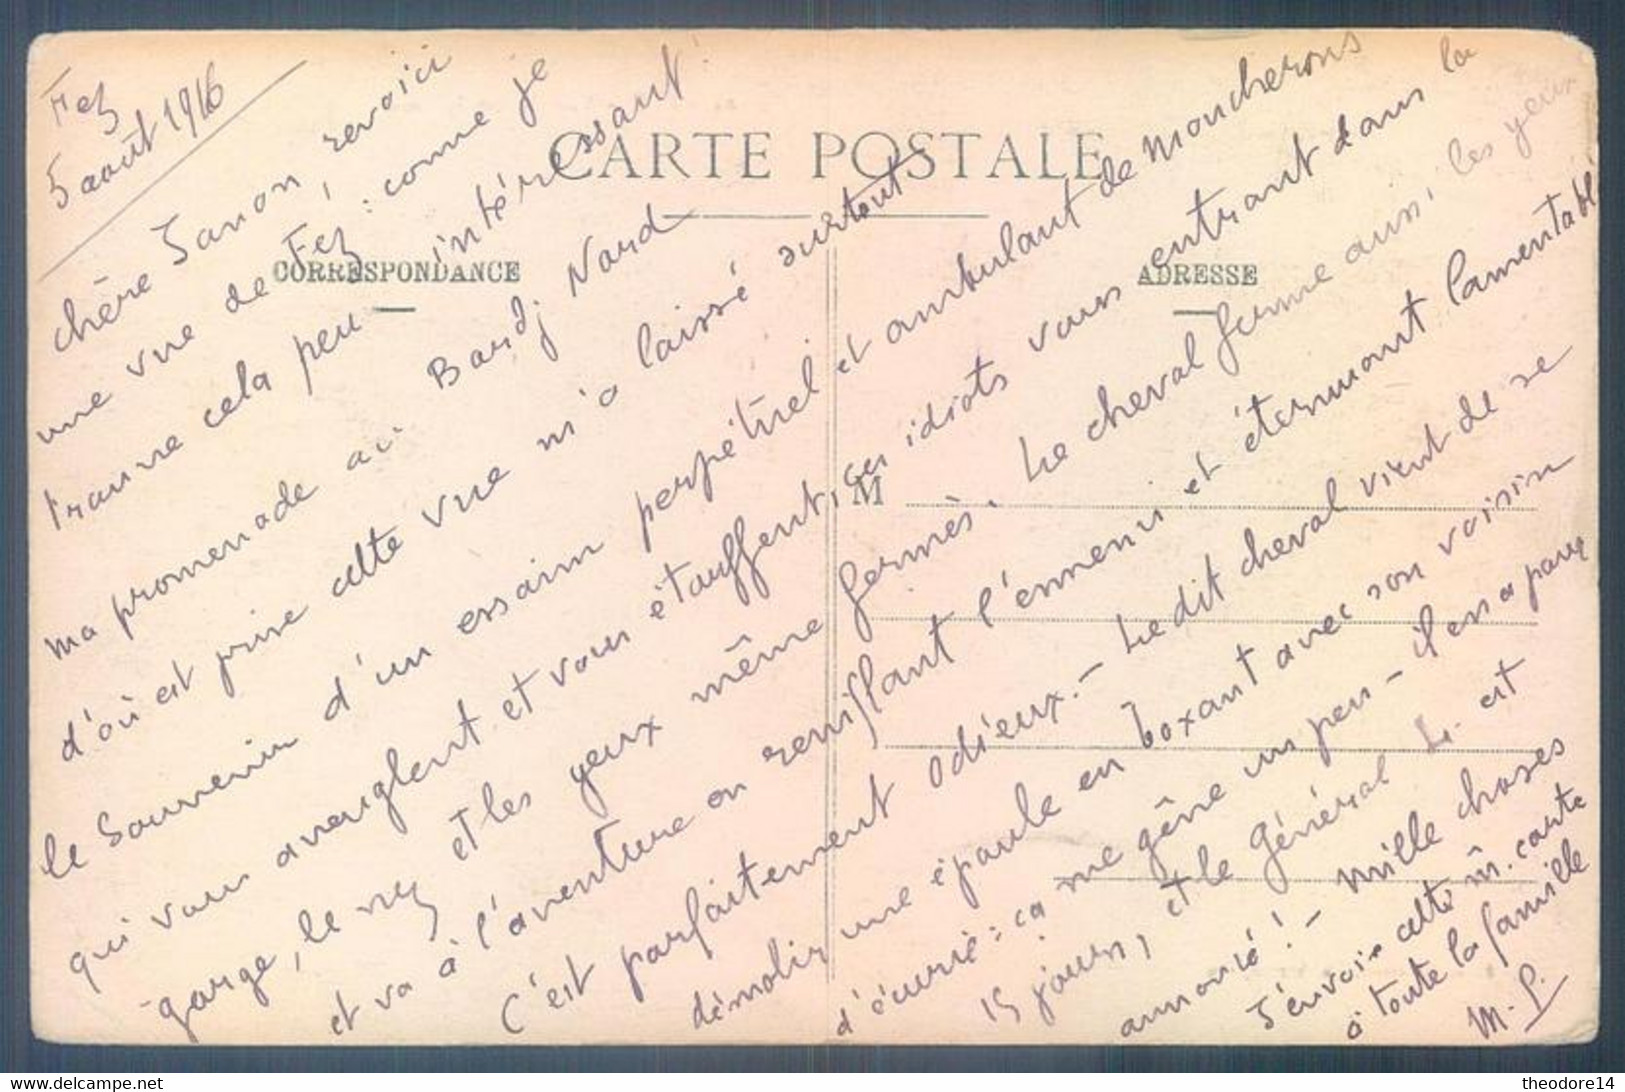 Fez
5 août 1916
CARTE POSTALE
CORRESPONDANCE
ADRESSE
M
chère Janon, revoici
une vue de Fez : come je
trouve cela peu intéressant !
ma promenade au Bordj Nord
d'où est prise cette vue m'a laissé surtout
le souvenir d'un essaim perpétuel et ambulant de moucherons
qui vous aveuglent et vous étouffent, ces idiots vous entrant dans la
gorge, le nez et les yeux même fermés. Le cheval ferme aussi les yeux
et va à l'aventure en reniflant l'ennemi et éternuant lamentabl
C'est parfaitement odieux. - Le dit cheval vient de se
démolir une épaule en boxant avec son voisin
d'écurie : ça me gêne un peu - il en a pour
15 jours, et le Général L. est
annoncé ! - Mille choses
J'envoie cette m̂ carte
à toute la famille
M. P.
delcampe.net
theodore14